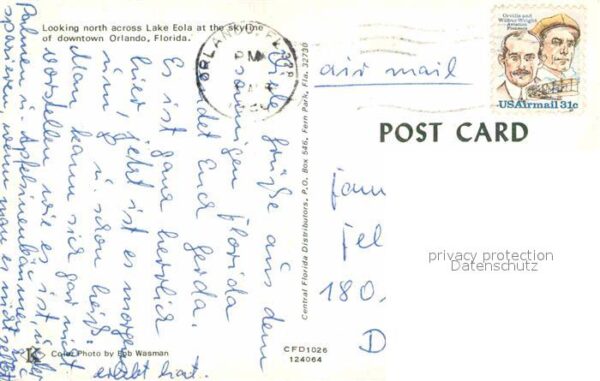 Looking north across Lake Eola at the skyline
of downtown Orlando, Florida.
ORLANDO
PM
Orville and
Wilbur Wright
Aviation
Pioneers
USAirmail 31c
air mail
POST CARD
Viele Grüße aus dem
sonnigen Florida
sendet Euch Gerda.
Es ist ganz herrlich
hier, jetzt ist es morgens
u. schon heiß.
Man kann sich gar nicht
vorstellen wie es ist, unter
Palmen u. Apfelsinenbäumen
spazieren, wenn man es nicht selbst
erlebt hat.
Central Florida Distributors, P.O. Box 546, Fern Park, Fla. 32730
Fam
180.
D
privacy protection
Datenschutz
K
Color Photo by Bob Wasman
CFD1026
124064